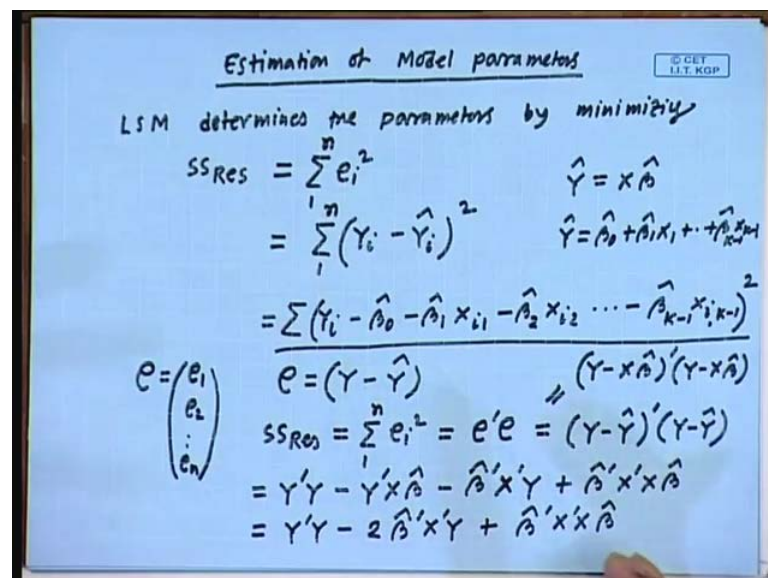 Estimation of Model parrameters
© CET
I.I.T. KGP
LSM determines the parrameters by minimiziy
SS_Res = Σ_1^n e_i^2
Ŷ = Xβ̂
= Σ_1^n (Y_i - Ŷ_i)^2
Ŷ = β̂_0 + β̂_1 X_1 + ·· + β̂_{K-1} X_{K-1}
= Σ (Y_i - β̂_0 - β̂_1 X_{i1} - β̂_2 X_{i2} ··· - β̂_{K-1} X_{i,K-1})^2
e = (e_1 e_2 : e_n)
e = (Y - Ŷ)
(Y - Xβ̂)'(Y - Xβ̂)
SS_Res = Σ_1^n e_i^2 = e'e = (Y - Ŷ)'(Y - Ŷ)
= Y'Y - Y'Xβ̂ - β̂'X'Y + β̂'X'Xβ̂
= Y'Y - 2β̂'X'Y + β̂'X'Xβ̂